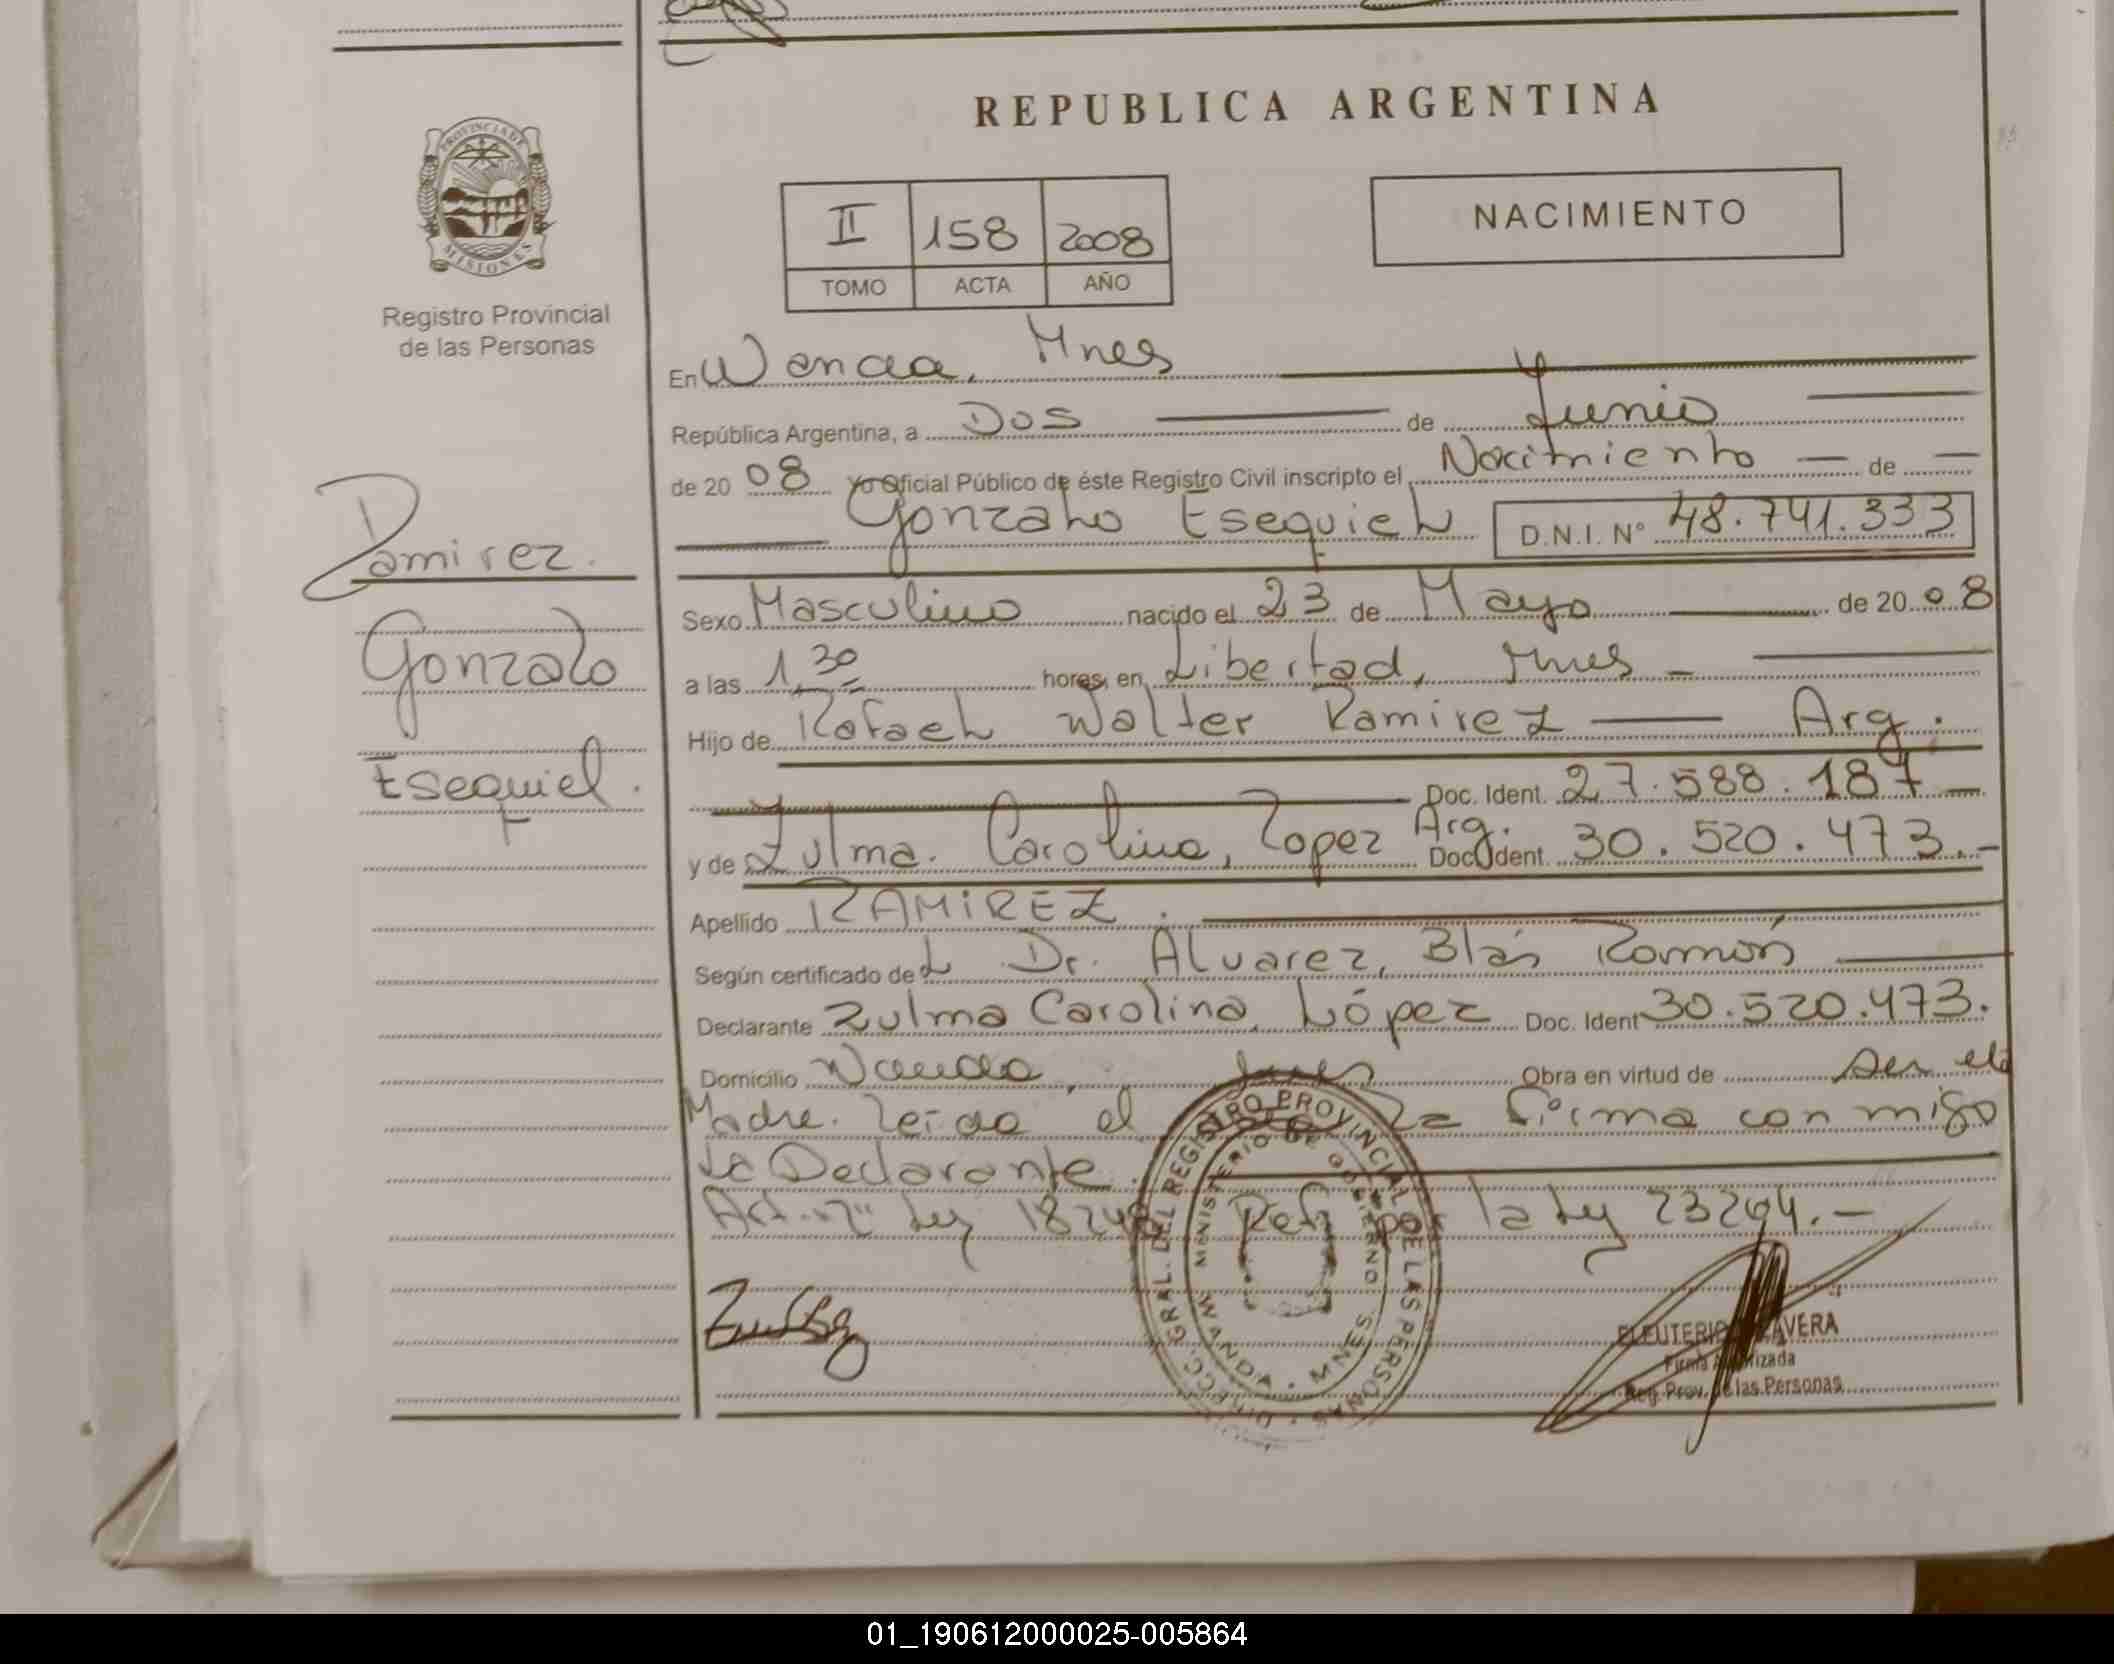 REPUBLICA ARGENTINA
PROVINCIA DE
MISIONES
Registro Provincial
de las Personas
II 158 2008
TOMO ACTA AÑO
NACIMIENTO
En Wanda, Mnes
República Argentina, a Dos de Junio
de 20 08 Yo Oficial Público de éste Registro Civil inscripto el Nacimiento de
Gonzalo Esequiel D.N.I. Nº 48.741.333
Ramirez.
Gonzalo
Esequiel.
Sexo Masculino nacido el 23 de Mayo de 20 08
a las 1,30 hores, en Libertad, Mnes
Hijo de Rafael Walter Ramirez Arg.
Doc. Ident. 27.588.187
y de Zulma Carolina, Lopez Arg. Doc. Ident. 30.520.473.-
Apellido RAMIREZ.
Según certificado del Dr. Alvarez, Blás Ramón
Declarante Zulma Carolina López Doc. Ident 30.520.473.
Domicilio Wanda, Mnes Obra en virtud de ser el
Madre. Leida el firma con migo
La Declarante.
Ley Ref. por la Ley 23264.-
DIRECC. GRAL. DEL REGISTRO PROVINCIAL DE LAS PERSONAS
MINISTERIO DE GOBIERNO
WANDA - MNES
ELEUTERIO
Firma Autorizada
Reg. Prov. de las Personas
01_190612000025-005864